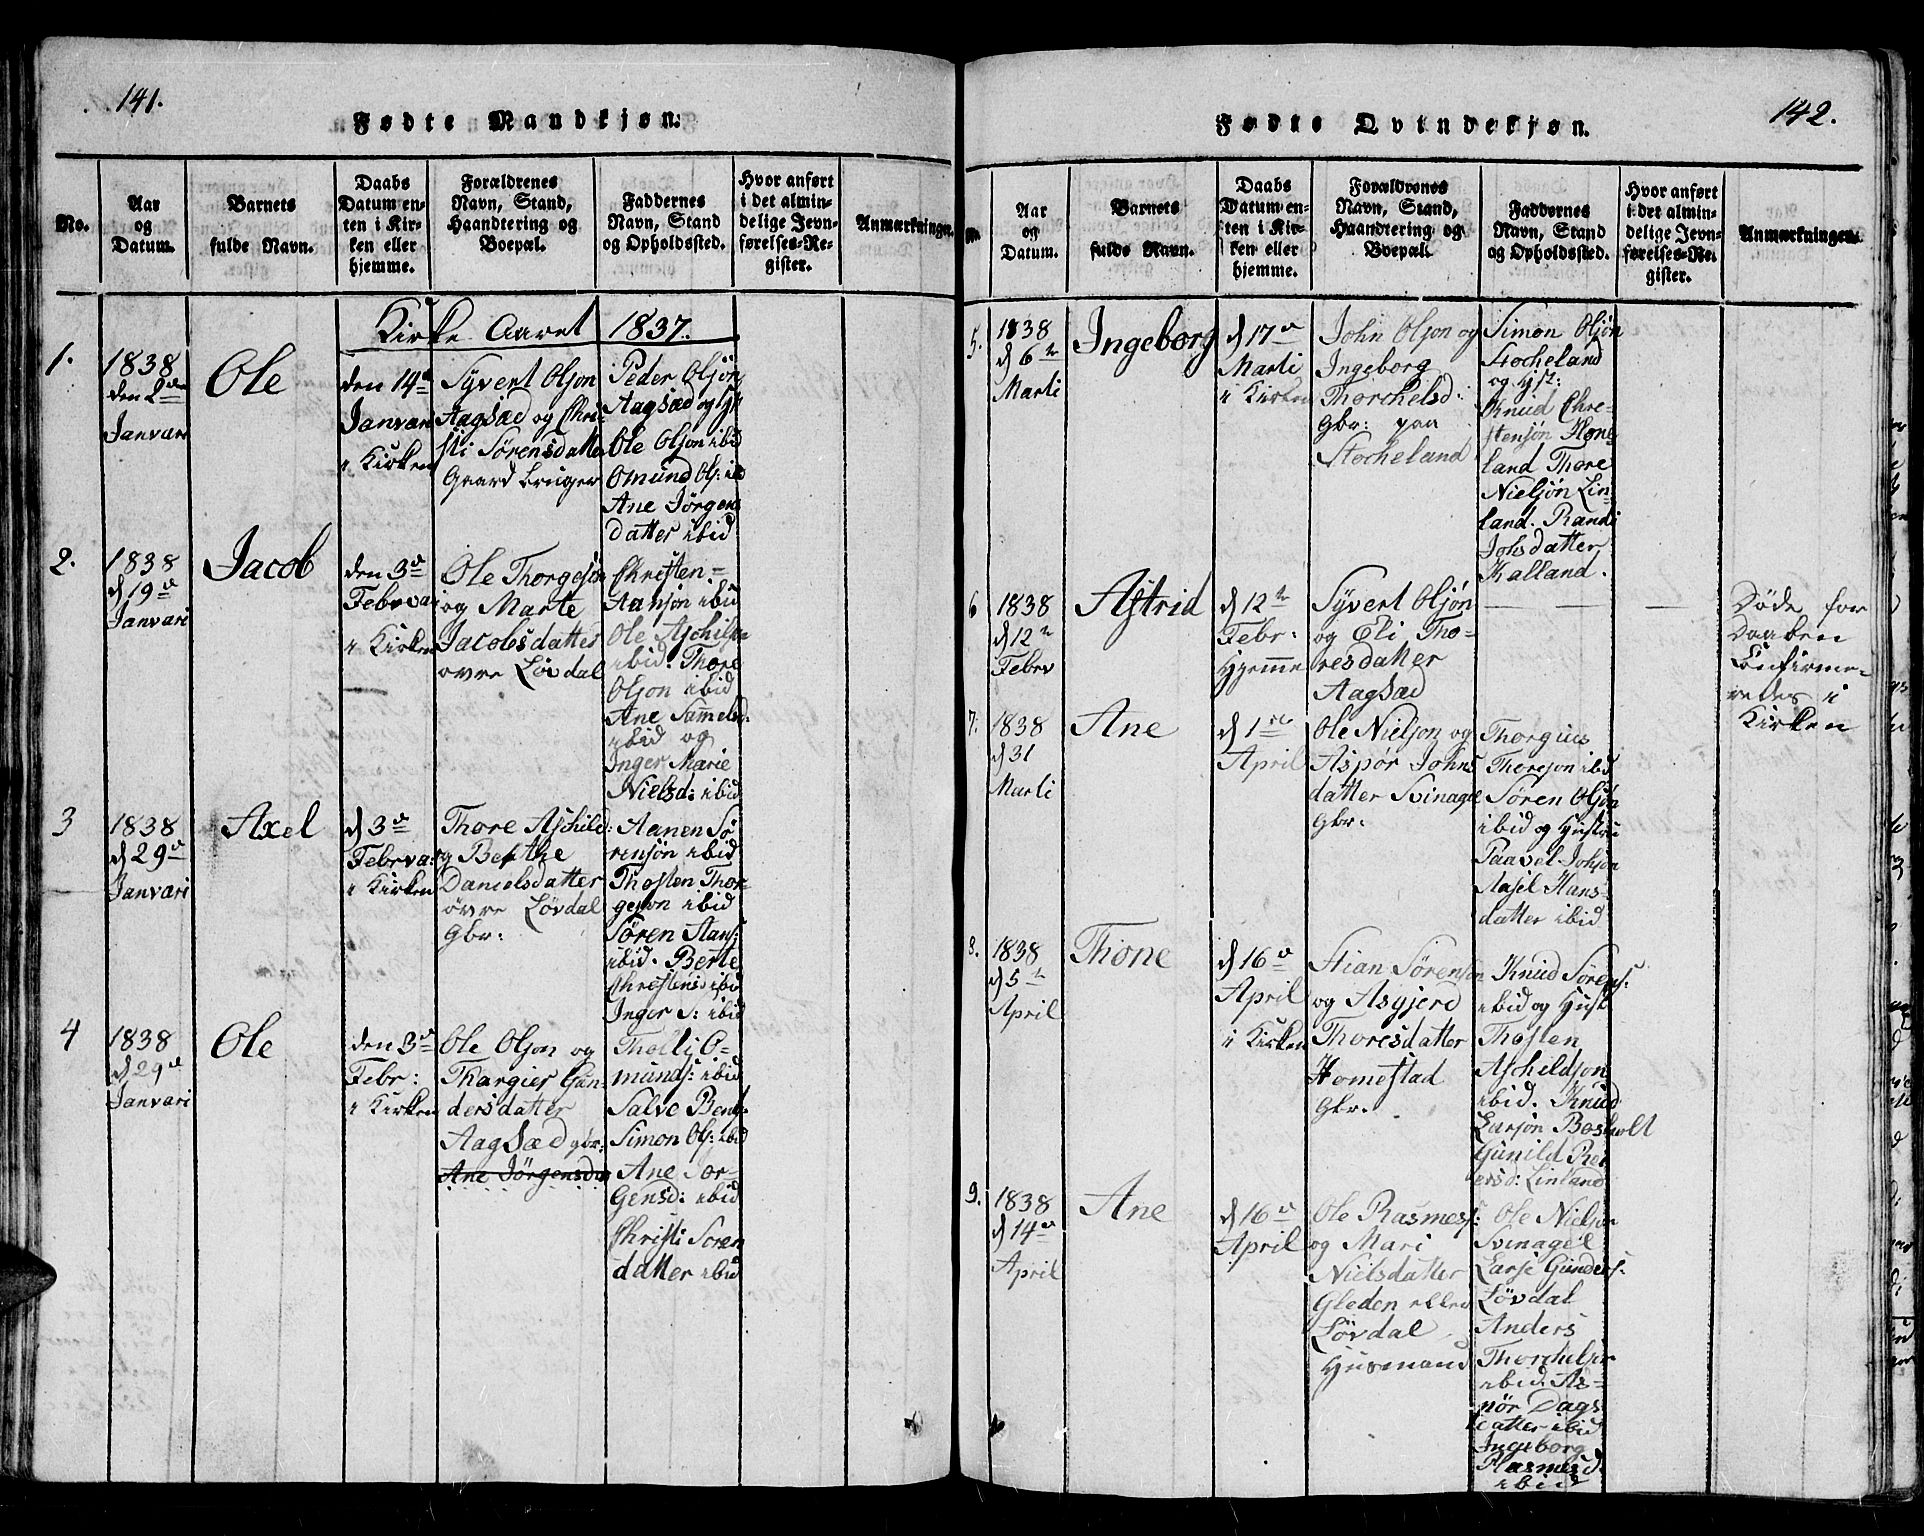 141.
Fødte Mandkjøn.
No.
Aar
og
Datum.
Barnets
fulde Navn.
Daabs
Datum en-
ten i Kir-
ken eller
hjemme.
Forældrenes
Navn, Stand,
Haandtering og
Boepæl.
Faddernes
Navn, Stand
og Opholdssted.
Hvor anført
i det almin-
delige Jevn-
førelses-Re-
gister.
Anmærkninger.
Kirke Aaret 1837.
1.
1838
den 2den
Janvari
Ole
den 14de
Janvari
i Kirken
Syvert Olson
Aagsæd og Chri-
sti Sørensdatter
Gaard bruger
Peder Olsøn
Aagsæd og
Ole Olson ibid
Omund Ols: ibid
Ane Jørgens
datter ibid
2.
1838
d 19de
Janvari
Jacob
den 3de
Februa
i Kirken
Ole Thorgesøn
og Marte
Jacobsdatter
øvre Løvdal
Christen
Aansøn ibid
Ole Aschilsøn
ibid. Thore
Olson ibid
Ane Sammelsd:
ibid og
Inger Marie
Nielsd: ibid
3
1838
d 29de
Janvari
Axel
d 3de
Februa:
i Kirken
Thore Aschild:
og Berthe
Danielsdatter
øvre Løvdal
Gbr:
Aanen Sø-
rensøn ibid
Thosten Thor-
geson ibid
Søren Aans:
ibid. Berte
Christens: ibid
Inger S: ibid
4
1838
d 29de
Janvari
Ole
den 3de
Febr:
i Kirken
Ole Olson og
Thargier Gun-
dersdatter
Aagsæd gbr:
Ane Jørgensda
Tholli O-
munds: ibid
Salve Bent
Simon Ols: ibid
Ane Jor-
Gensd: ibid
Christi Soren
datter ibid
142.
Fødte Qvindekjøn.
Aar
og
Datum.
Barnets
fulde Navn.
Daabs
Datum en-
ten i Kir-
ken eller
hjemme.
Forældrenes
Navn, Stand,
Haandtering og
Boepæl.
Faddernes
Navn, Stand
og Opholdssted.
Hvor anført
i det almin-
delige Jevn-
førelses-Re-
gister.
Anmærkninger.
5.
1838
d 6te
Marti
Ingeborg
d 17de
Marti
i Kirken
John Olson og
Ingeborg
Thorchelsd:
Gbr: paa
Stocheland
Simon Olsøn
Stocheland
og Hst:
Knud Chre-
stensøn Hone
land Thore
Nielsøn Lin-
land. Randi
Johsdatter
Kalland.
6
1838
d 12te
Febrv
Astrid
d 12te
Febr:
Hjemme
Syvert Olsøn
og Eli Tho-
resdatter
Aagsæd
Døde for
Daaben
Confirme-
redes i
Kirken
7.
1838
d 31
Marti
Ane
d 1ste
April
Ole Nielson og
Aspør Johns
datter Svinagel
Gbr:
Thorgius
Thoreson ibid
Søren Olsøn
ibid og Hustru
Paavel Johson
Aasel Hans-
datter ibid
8.
1838
d 5te
April
Thone
d 16de
April
i Kirken
Stian Sørensøn
og Asgjerd
Thoresdatter
Homestad
Gbr.
Knud Sørens:
ibid og Hust
Thosten
Aschildson
ibid. Knud
Larsøn Bosholt
Gunild Ped
ersd: Linland
9.
1838
d 14de
April
Ane
d 16de
April
Ole Rasmess:
og Mari
Nielsdatter
Gleden eller
Løvdal
Husmand
Ole Nielsøn
Svinagel
Larse Gunders:
Løvdal
Anders
Thorchelson
ibid. As-
pør Dags
datter ibid
Ingeborg
Rasmesd.
ibid